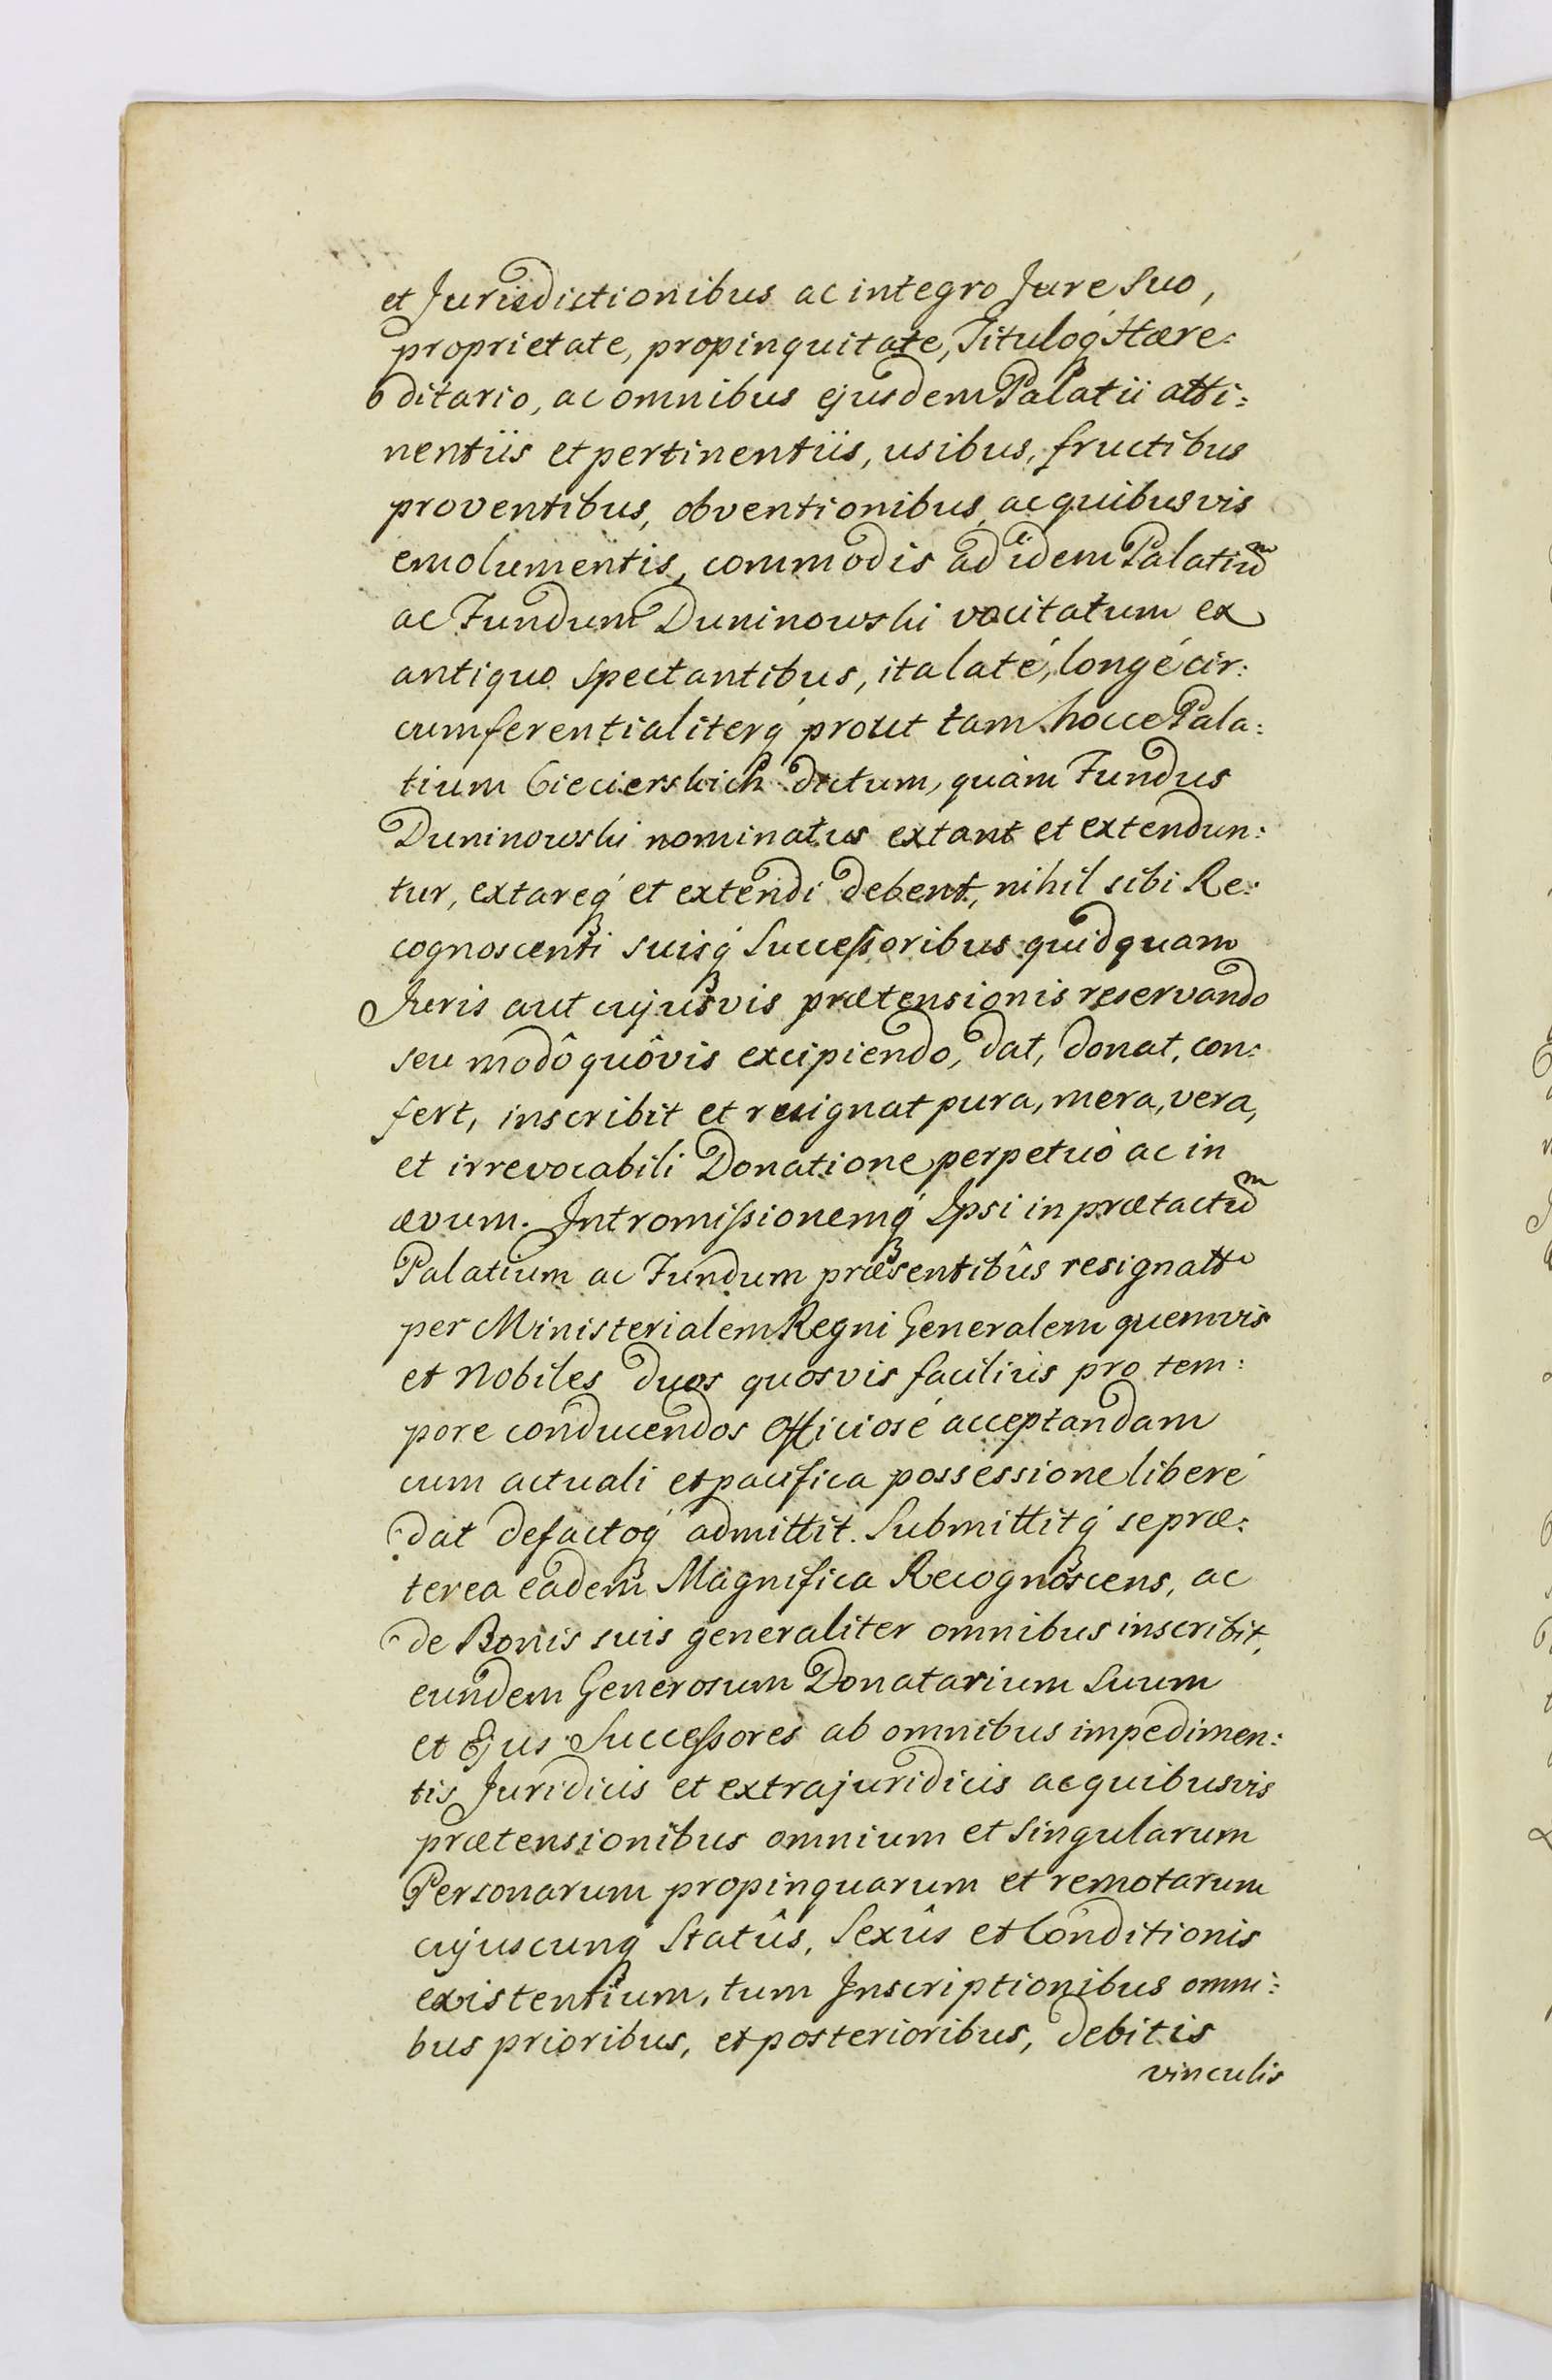 et Jurisdictionibus ac integro Jure Suo,
proprietate, propinquitate, Tituloq́ Hære:
ditario, ac omnibus ejusdem Palatii atti:
nentiis et pertinentiis, usibus, fructibus
proventibus, obventionibus, ac quibusvis
emolumentis, commodis ad idem Palatiũ
ac Fundum Duninowski vocitatum ex
antiquo spectantibus, ita laté, longé cir:
cumferentialiterq́ prout tam hocce Pala:
tium Ciecierskich dictum, quàm Fundus
Duninowski nominatus extant et extendun:
tur, extareq́ et extendi debent, nihil sibi Re:
cognoscenti suisq́ Successoribus quidquam
Juris aut cujusvis prætensionis reservando
seu modô quôvis excipiendo, dat, donat, con:
fert, inscribit et resignat pura, mera, vera,
et irrevocabili Donatione perpetuò ac in
ævum. Intromissionemq́ Ipsi in prætactũ
Palatium ac Fundum præsentibûs resignatt
per Ministerialem Regni Generalem quemvis
et Nobiles duos quosvis faciliùs pro tem:
pore conducendos Officiosé acceptandam
cum actuali et pacifica possessione liberé
dat defactoq́ admittit. Submittitq́ se præ:
terea eadem Magnifica Recognoscens, ac
de Bonis suis generaliter omnibus inscribit,
eundem Generosum Donatarium Suum
et Ejus Successores ab omnibus impedimen:
tis Juridicis et extrajuridicis ac quibusvis
prætensionibus omnium et singularum
Personarum propinquarum et remotarum
cujuscunq́ Statûs, Sexûs et Conditionis
existentium, tum Inscriptionibus omni:
bus prioribus, et posterioribus, debitis
vinculis